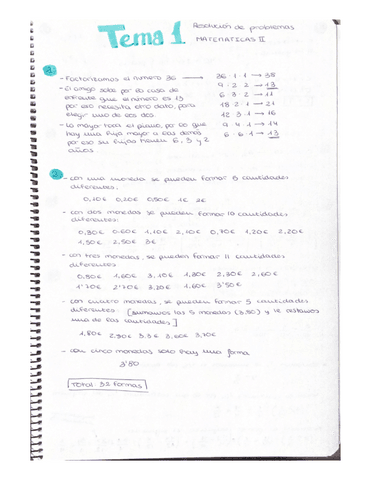 Tema 1
Resolución de problemas
MATEMÁTICAS II
1.
- Factorizamos el número 36 → 36·1·1 → 38
9·2·2 → 13
6·3·2 → 11
18·2·1 → 21
12·3·1 → 16
9·4·1 → 14
6·6·1 → 13
- El amigo sale por la casa de
enfrente que el número es 13
por eso necesita otro dato, para
elegir uno de los dos
- La mayor toca el piano, por lo que
hay una hija mayor a las demás
por eso sus hijas tienen 9, 2 y 2
años.
2.
- Con una moneda se pueden formar 5 cantidades
diferentes.
0,10€ 0,20€ 0,50€ 1€ 2€
- Con dos monedas se pueden formar 10 cantidades
diferentes:
0,30€ 0,60€ 1,10€ 2,10€ 0,70€ 1,20€ 2,20€
1,50€ 2,50€ 3€
- Con tres monedas, se pueden formar 11 cantidades
diferentes
0,80€ 1,60€ 3,10€ 1,30€ 2,30€ 2,60€
1'70€ 2'70€ 3,20€ 1,60€ 3'50€
- Con cuatro monedas, se pueden formar 5 cantidades
diferentes: [sumamos las 5 monedas (3,80) y le restamos
una de las cantidades]
1,80€ 2,80€ 3,3€ 3,60€ 3,70€
- Con cinco monedas solo hay una forma
3'80
Total 32 formas